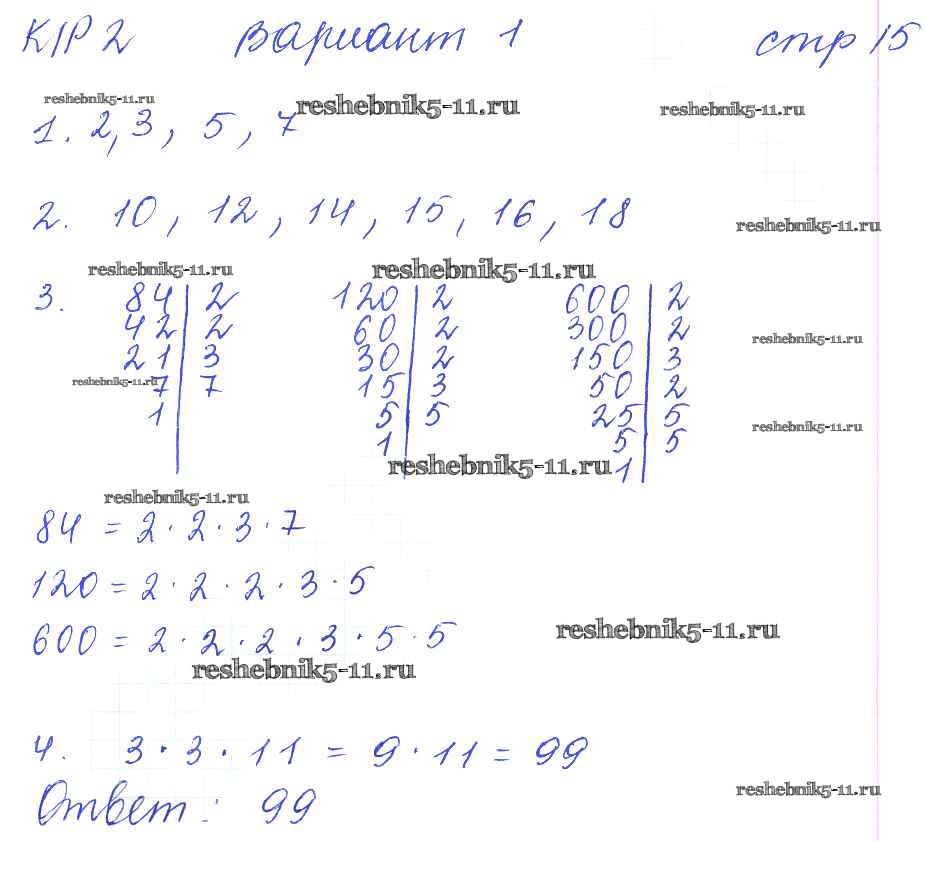 К/Р 2 Вариант 1 стр 15
reshebnik5-11.ru reshebnik5-11.ru reshebnik5-11.ru
1. 2, 3, 5, 7
2. 10, 12, 14, 15, 16, 18
reshebnik5-11.ru
reshebnik5-11.ru reshebnik5-11.ru
3. 84 | 2 120 | 2 600 | 2
42 | 2 60 | 2 300 | 2
reshebnik5-11.ru
21 | 3 30 | 2 150 | 3
reshebnik5-11.ru
7 | 7 15 | 3 50 | 2
1 | 5 | 5 25 | 5
reshebnik5-11.ru
1 | 5 | 5
reshebnik5-11.ru
1 |
reshebnik5-11.ru
84 = 2 · 2 · 3 · 7
120 = 2 · 2 · 2 · 3 · 5
600 = 2 · 2 · 2 · 3 · 5 · 5
reshebnik5-11.ru
reshebnik5-11.ru
4. 3 · 3 · 11 = 9 · 11 = 99
Ответ: 99
reshebnik5-11.ru